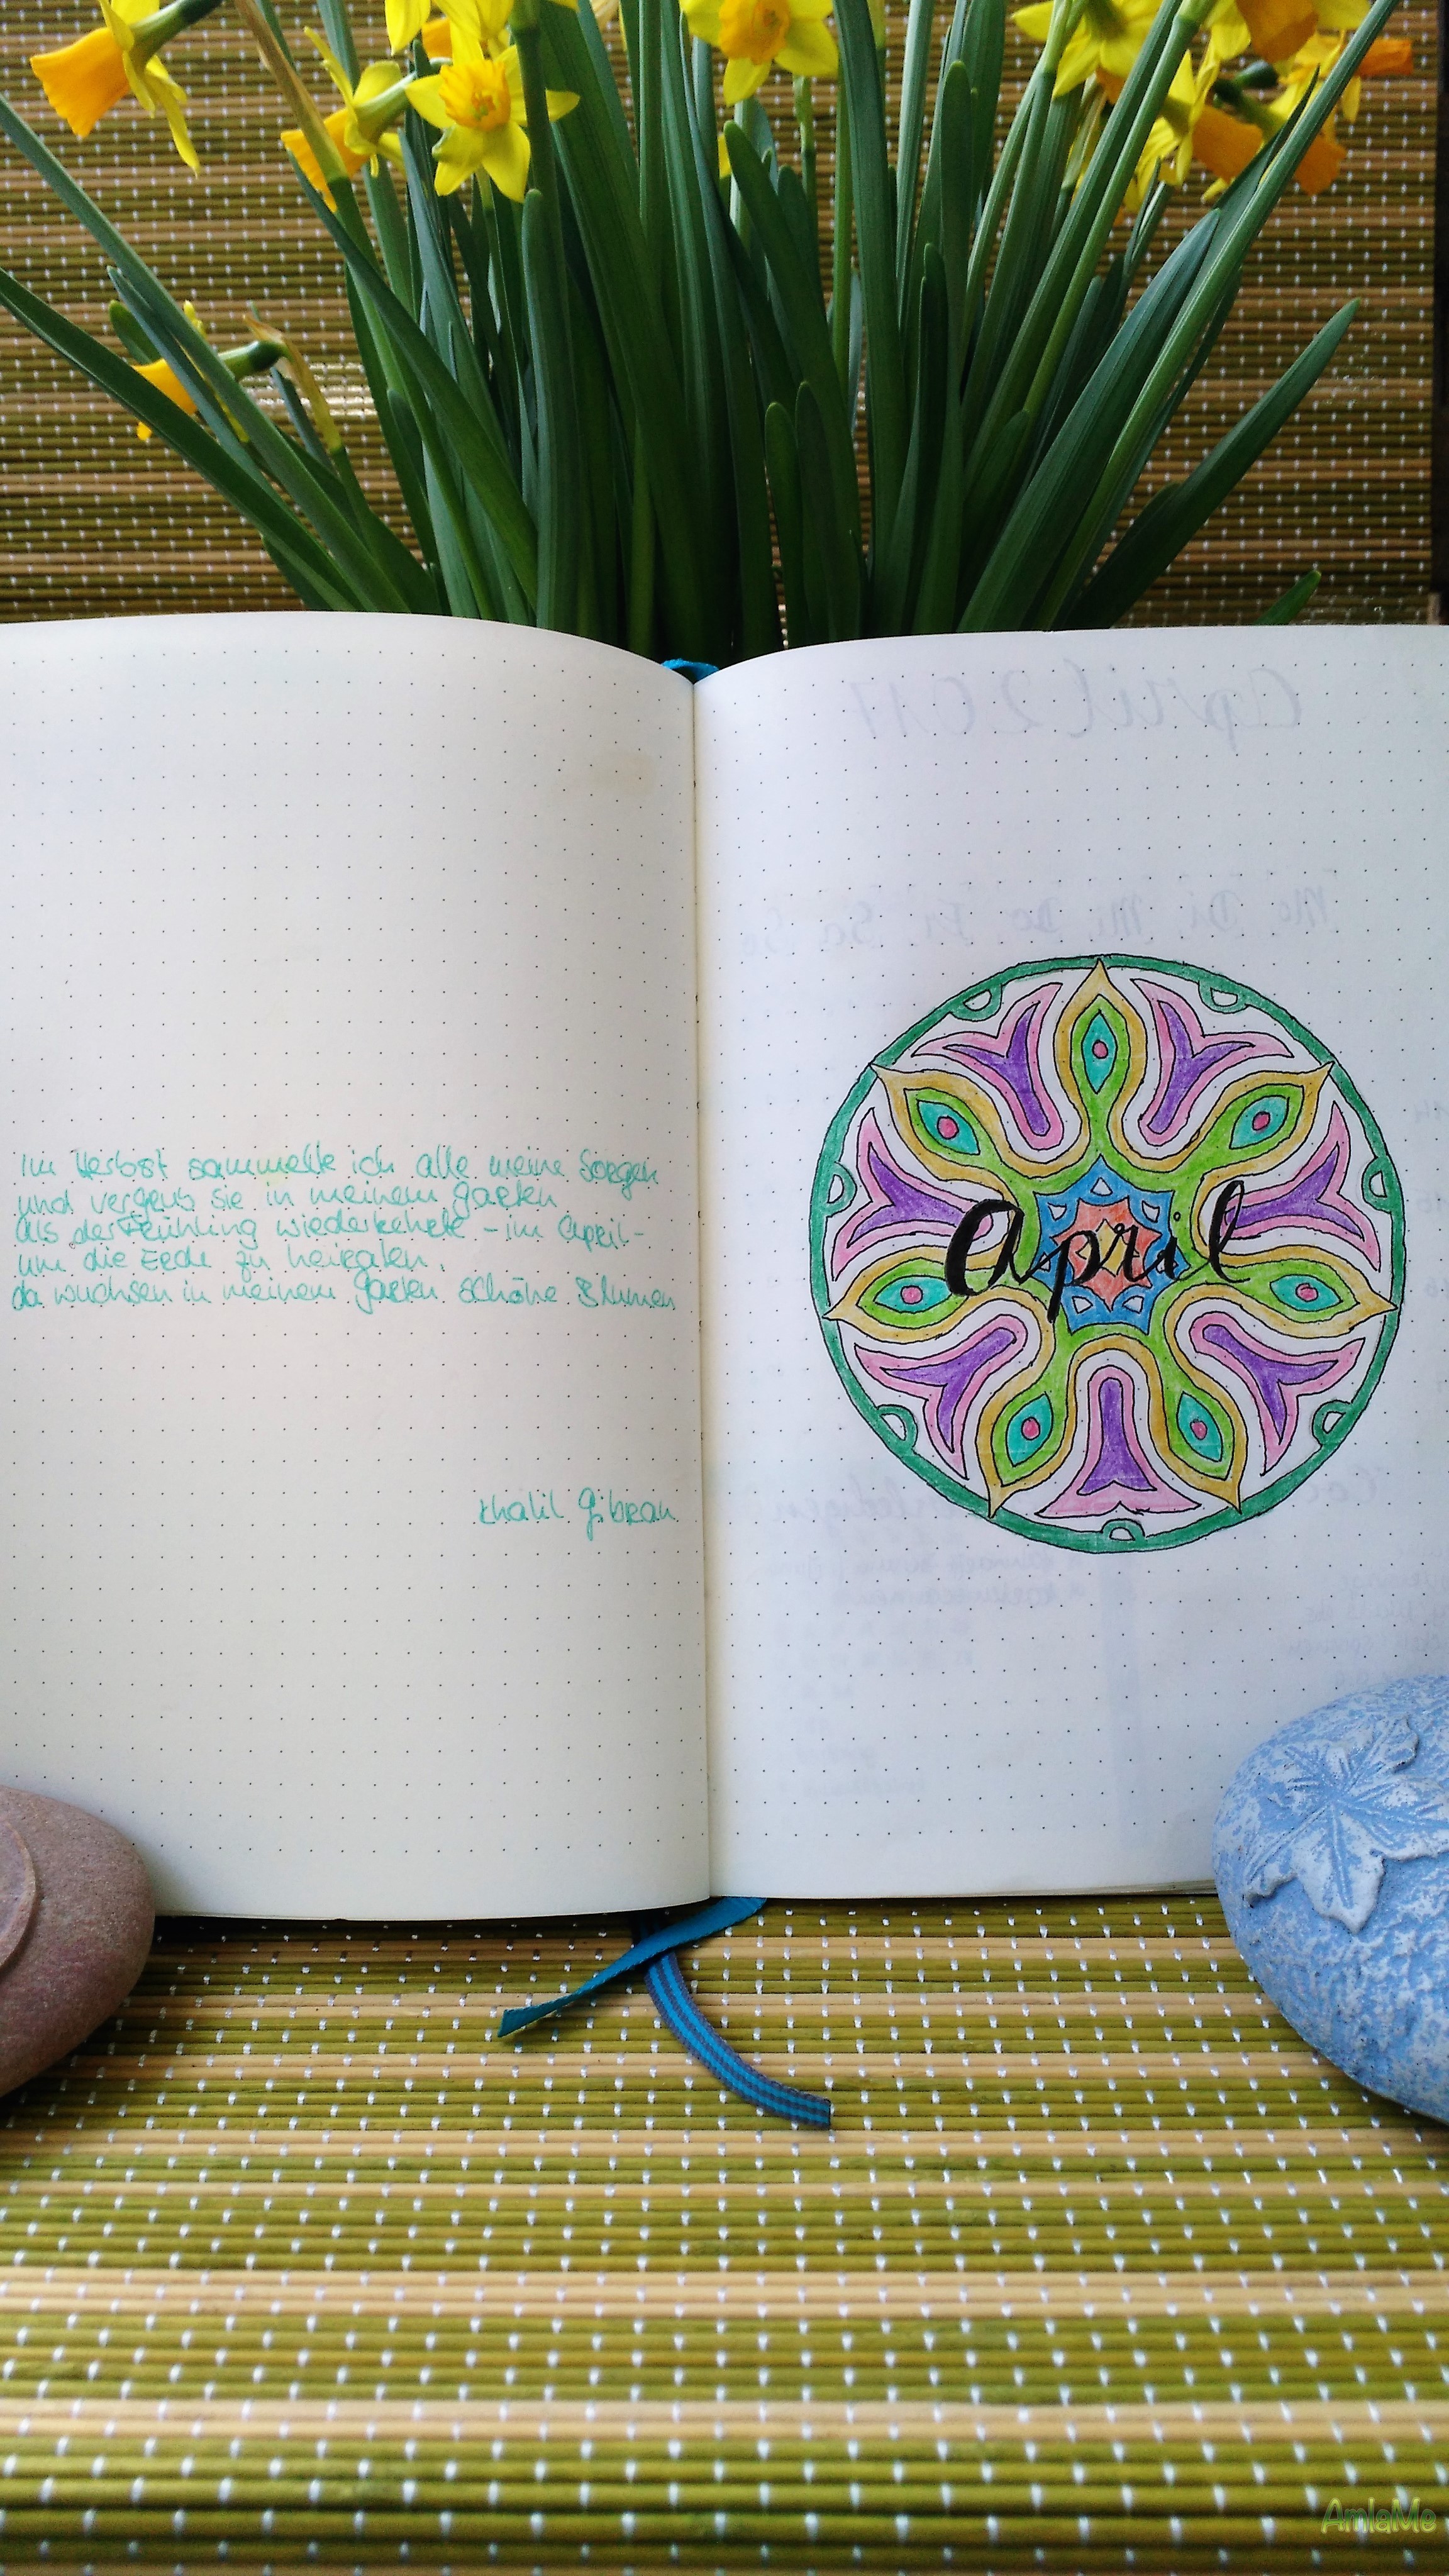 Im Herbst sammelte ich alle meine Sorgen
und vergrub sie in meinem Garten
als der Frühling wiederkehrte - im April -
um die Erde zu heiraten,
da wuchsen in meinem Garten schöne Blumen
Khalil Gibran
April 2017
Mo Di Mi Do Fr Sa So
April
AmlaMe